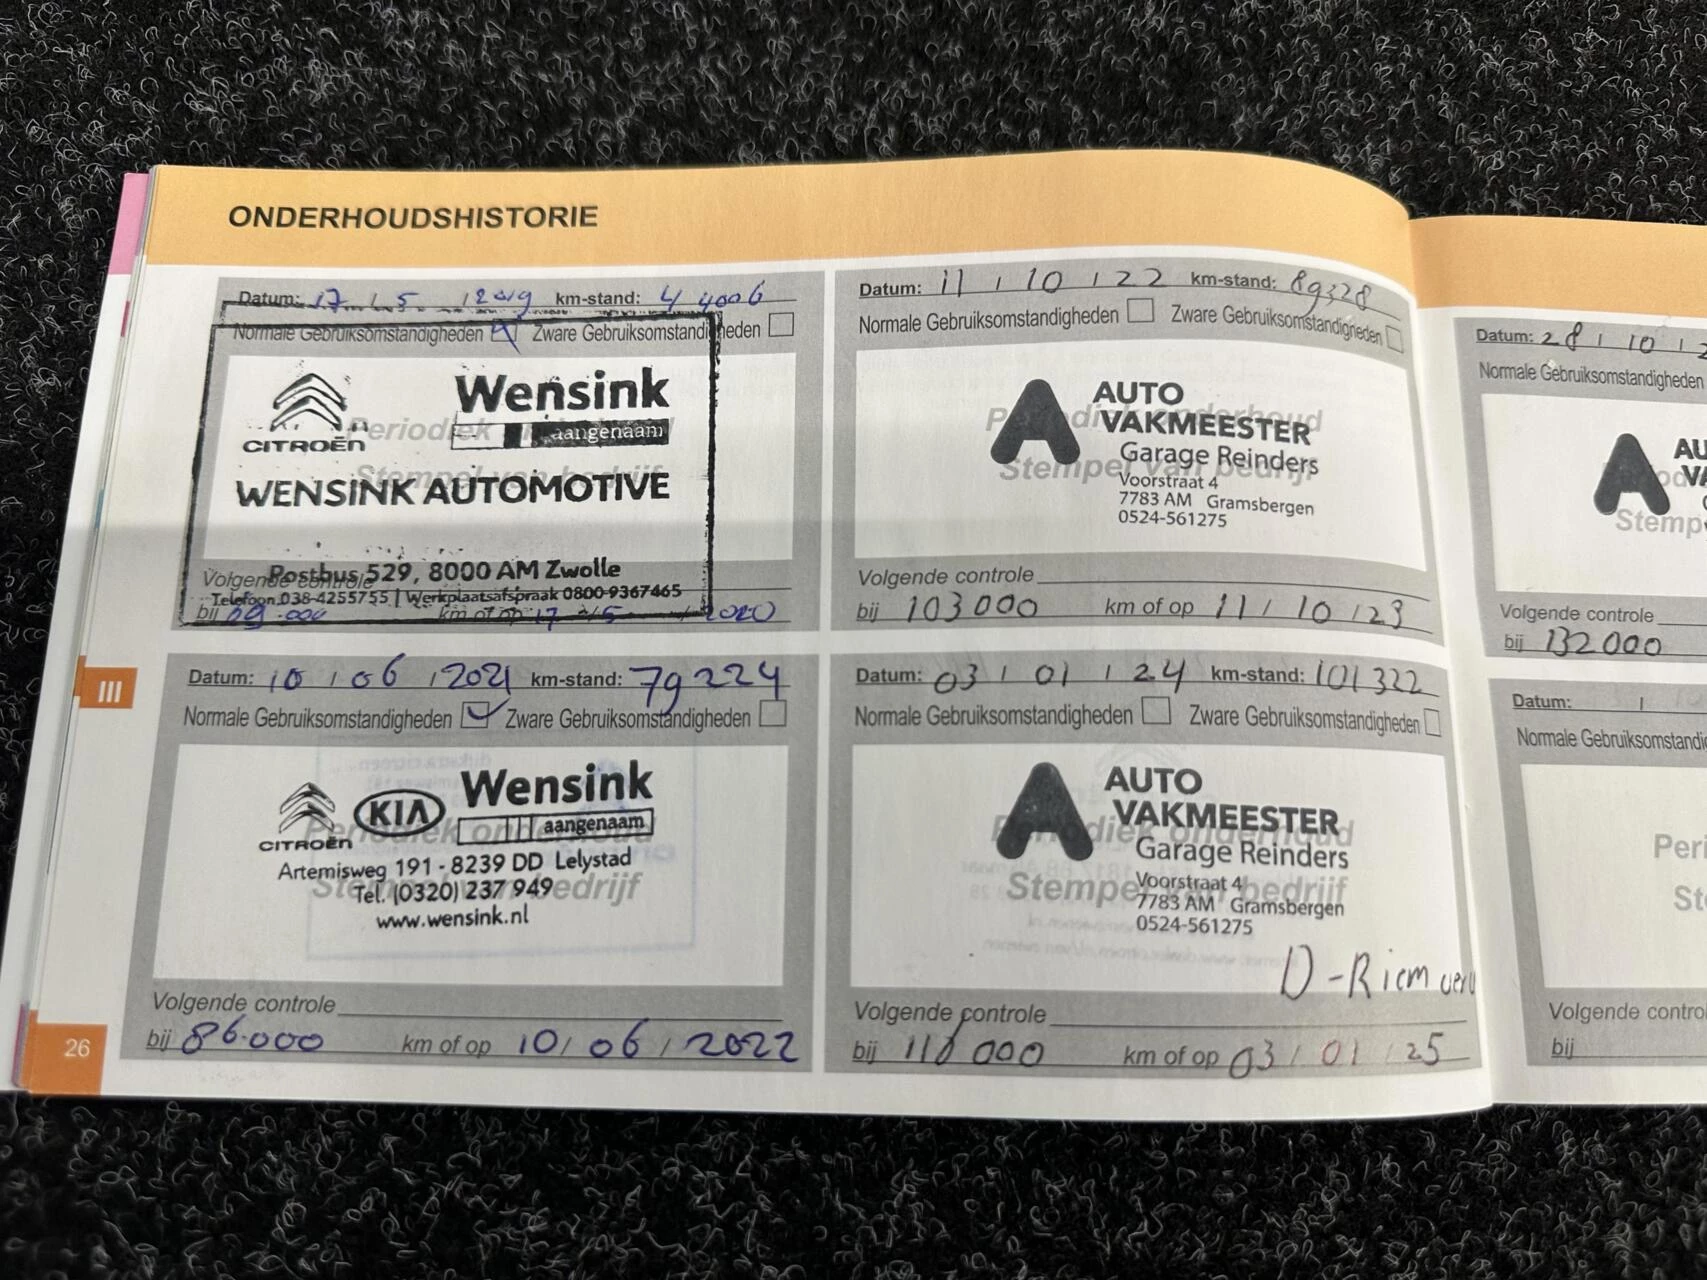 ONDERHOUDSHISTORIE
Datum: 17 / 5 / 2019 km-stand: 44006
Normale Gebruiksomstandigheden Zware Gebruiksomstandigheden
Periodiek onderhoud
Stempel van bedrijf
CITROËN
Wensink
aangenaam
WENSINK AUTOMOTIVE
Postbus 529, 8000 AM Zwolle
Telefoon 038-4255755 | Werkplaatsafspraak 0800-9367465
Volgende controle
bij km of op 17 / 5 / 2020
Datum: 10 / 06 / 2021 km-stand: 79224
Normale Gebruiksomstandigheden Zware Gebruiksomstandigheden
Periodiek onderhoud
Stempel van bedrijf
CITROËN
KIA
Wensink
aangenaam
Artemisweg 191 - 8239 DD Lelystad
Tel. (0320) 237 949
www.wensink.nl
Volgende controle
bij 86.000 km of op 10 / 06 / 2022
III
26
Datum: 11 / 10 / 22 km-stand: 89328
Normale Gebruiksomstandigheden Zware Gebruiksomstandigheden
Periodiek onderhoud
Stempel van bedrijf
AUTO
VAKMEESTER
Garage Reinders
Voorstraat 4
7783 AM Gramsbergen
0524-561275
Volgende controle
bij 103000 km of op 11 / 10 / 23
Datum: 03 / 01 / 24 km-stand: 101322
Normale Gebruiksomstandigheden Zware Gebruiksomstandigheden
Periodiek onderhoud
Stempel van bedrijf
AUTO
VAKMEESTER
Garage Reinders
Voorstraat 4
7783 AM Gramsbergen
0524-561275
D-Riem
Volgende controle
bij km of op 03 / 01 / 25
Datum: 28 / 10 / 2
Normale Gebruiksomstandigheden
AU
VA
Stemp
Volgende controle
bij 132000
Datum: / /
Normale Gebruiksomstandig
Peri
St
Volgende contro
bij